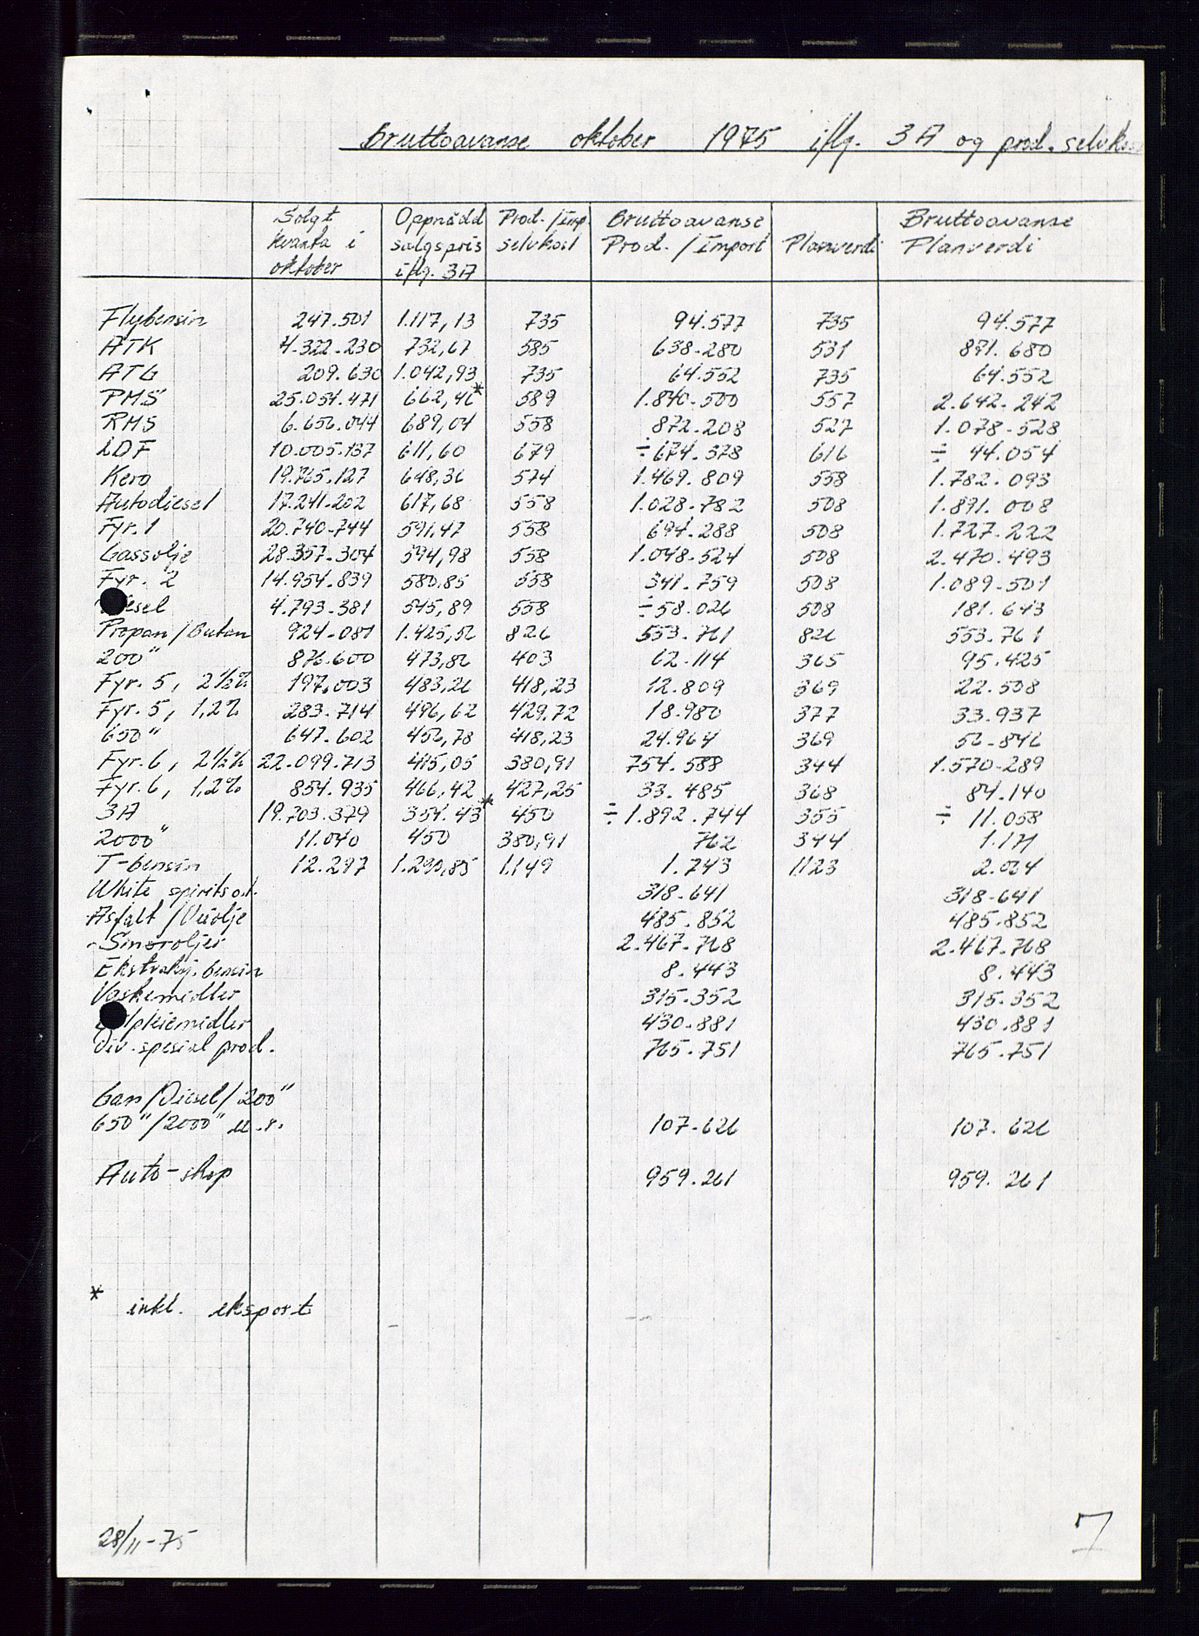 Bruttoavanse oktober 1975 iflg. 3A og prod. selvkost
Solgt kvanta i oktober | Oppnådd salgspris iflg. 3A | Prod./imp selvkost | Bruttoavanse Prod./import | Planverdi | Bruttoavanse Planverdi
Flybensin 247.501 1.117,13 735 94.577 735 94.577
ATK 4.322.230 732,67 585 638.280 531 871.680
ATG 209.630 1.042,93 735 64.552 735 64.552
PMS 25.054.471 662,46* 589 1.840.500 557 2.642.242
RMS 6.656.044 689,04 558 872.208 527 1.078.528
LDF 10.005.137 611,60 679 ÷674.378 616 ÷ 44.054
Kero 19.765.127 648,36 574 1.469.809 558 1.782.093
Autodiesel 17.241.202 617,68 558 1.028.782 508 1.891.008
Fyr.1 20.740.744 591,47 558 694.288 508 1.727.222
Gassolje 28.357.304 594,98 558 1.048.524 508 2.470.493
Fyr. 2 14.954.839 580,85 558 341.759 508 1.089.501
Diesel 4.793.381 545,89 558 ÷58.026 508 181.643
Propan/Butan 924.081 1.425,56 826 553.761 826 553.761
200" 876.600 473,86 403 62.114 365 95.425
Fyr. 5, 2½% 197.003 483,26 418,23 12.809 369 22.508
Fyr. 5, 1,2% 283.714 496,62 429.72 18.980 377 33.937
650" 647.602 456,78 418,23 24.964 369 56.846
Fyr. 6, 2½% 22.099.713 415,05 380,91 754.588 344 1.570.289
Fyr. 6, 1,2% 854.935 466,42 427,25 33.485 368 84.140
3A 19.703.379 354.43* 450 ÷1.892.744 355 ÷ 11.058
2000" 11.040 450 380,91 762 344 1.171
T-bensin 12.297 1.290,85 1.149 1.743 1.123 2.064
White spirits o.l. 318.641 318.641
Asfalt/Veiolje 485.852 485.852
Smøroljer 2.467.768 2.467.768
Ekstraksj. bensin 8.443 8.443
Vaskemidler 315.352 315.352
430.881 430.881
Div. spesial prod. 765.751 765.751
Gass/Diesel/200"
650"/2000" u.s. 107.626 107.626
Auto-shop 959.261 959.261
* inkl. eksport
28/11-75
7